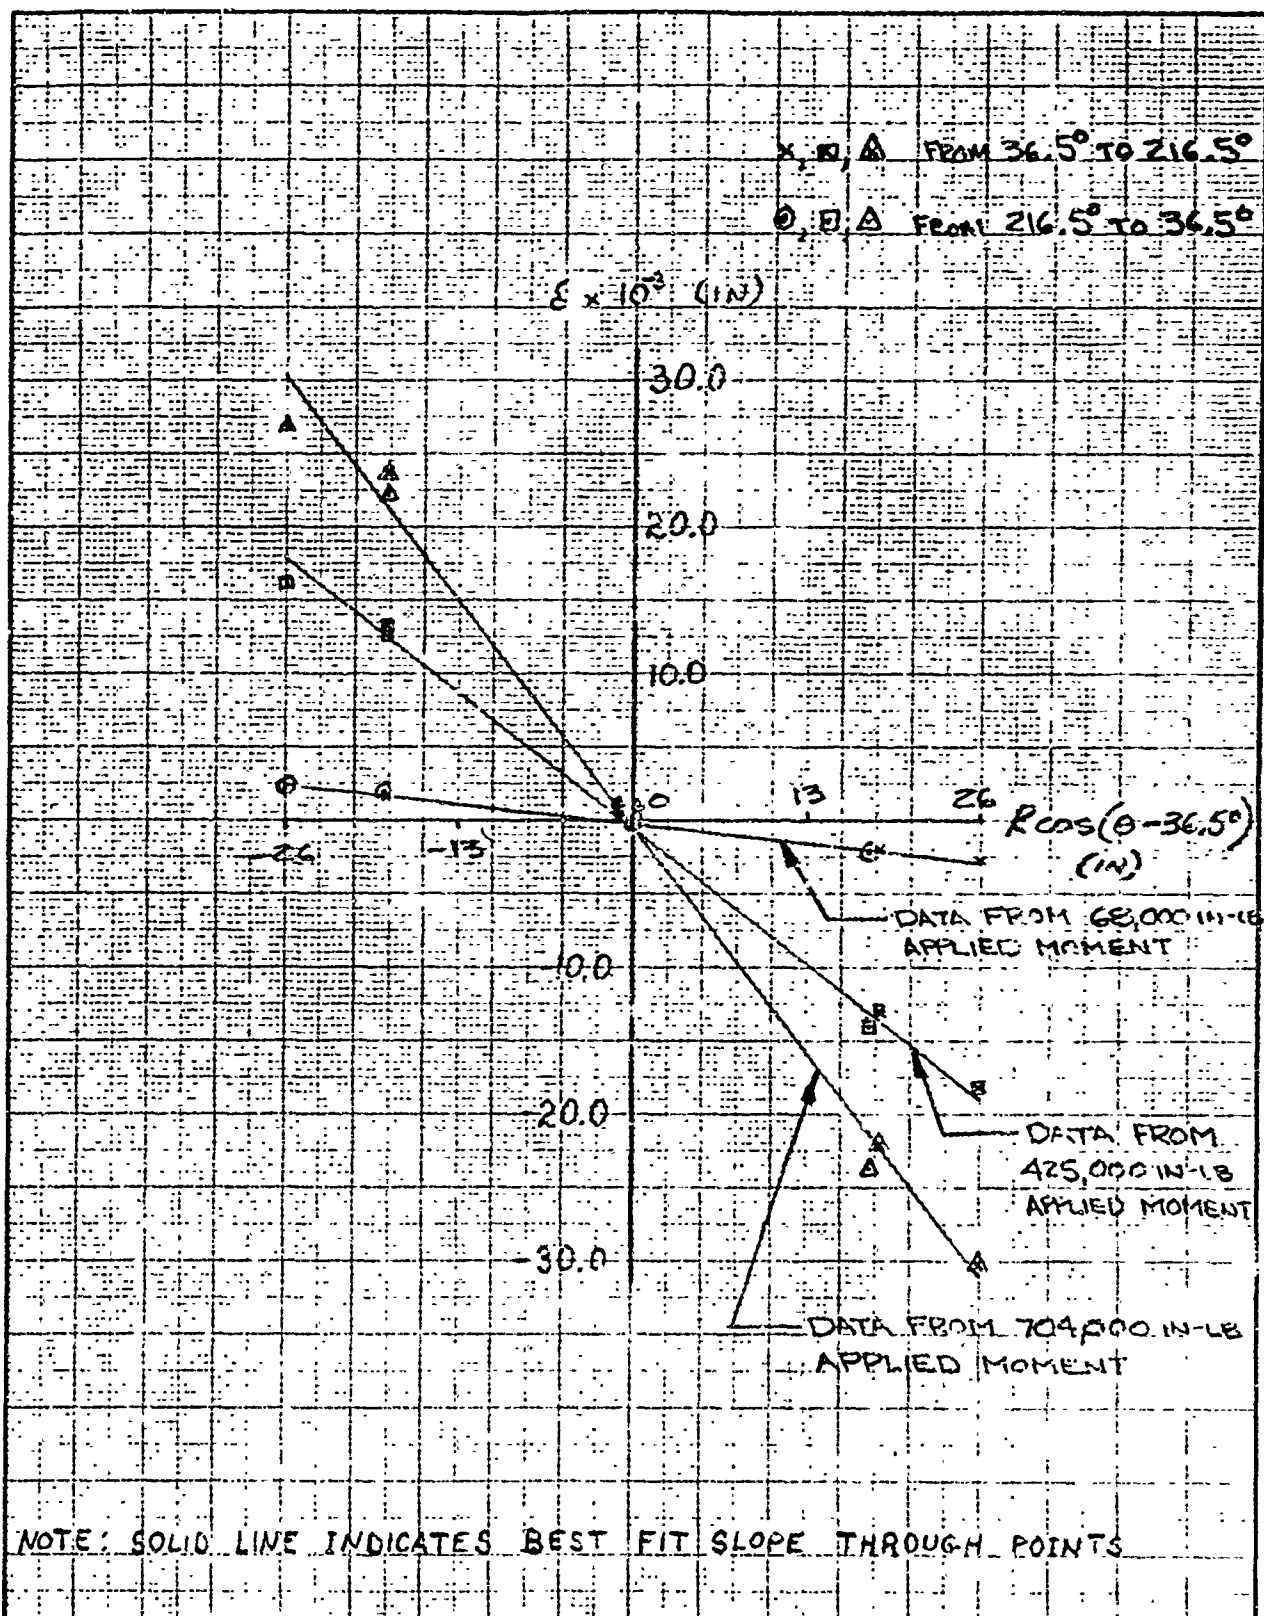 ×, ⊠, △ FROM 36.5° TO 216.5°
⊙, ⊡, △ FROM 216.5° TO 36.5°
ε × 10⁻³ (IN)
30.0
20.0
10.0
0
13
26
R cos(θ-36.5°)
(IN)
-26
-13
DATA FROM 68,000 IN-LB
APPLIED MOMENT
-10.0
-20.0
DATA FROM
425,000 IN-LB
APPLIED MOMENT
-30.0
DATA FROM 704,000 IN-LB
APPLIED MOMENT
NOTE: SOLID LINE INDICATES BEST FIT SLOPE THROUGH POINTS